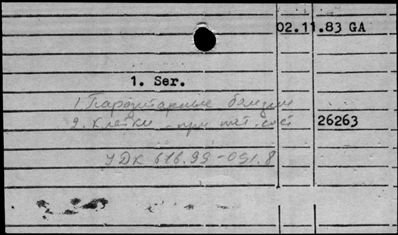 02.11.83 GA
1. Ser.
1. Паразитарные
2. Клетки при пат. сост 26263
УДК 616.99-091.8